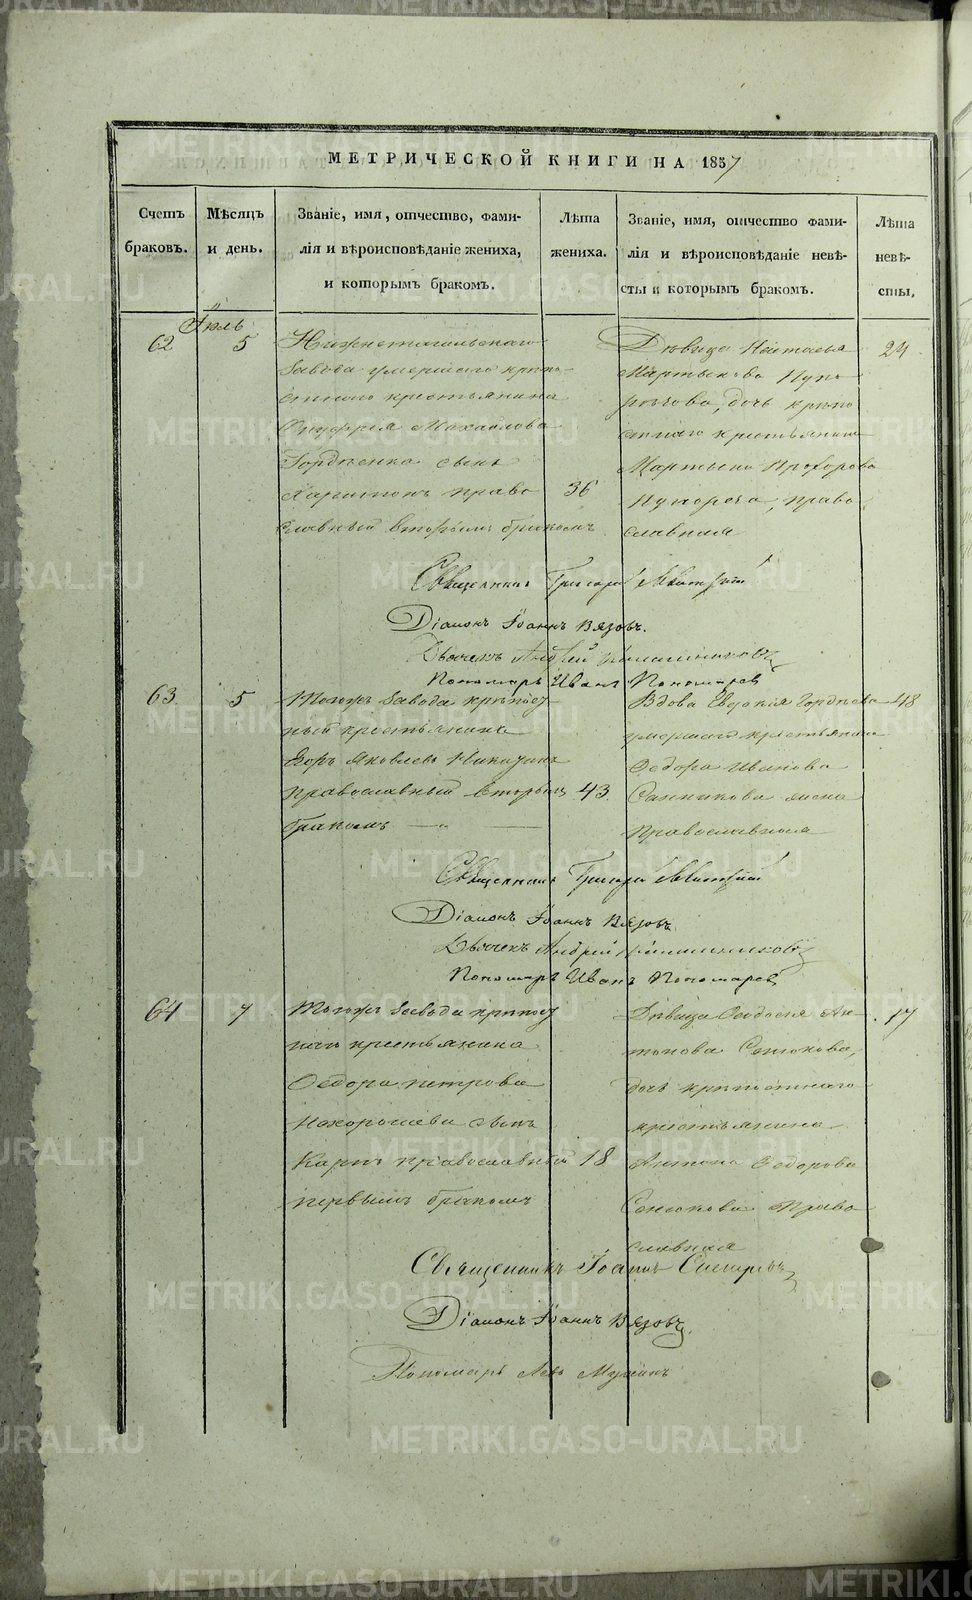 МЕТРИЧЕСКОЙ КНИГИ НА 1857
Счетъ браковъ.
Мѣсяцъ и день.
Званіе, имя, отчество, фами-
лія и вѣроисповѣданіе жениха,
и которымъ бракомъ.
Лѣта жениха.
Званіе, имя, отчество фами-
лія и вѣроисповѣданіе невѣ-
сты и которымъ бракомъ.
Лѣта невѣ-
сты,
Іюль
62
5
Нижнетагильскаго
завода умершаго крѣпо-
стнаго крестьянина
Онуфрія Михайлова
Гордѣенка сынъ
Харитонъ право
славный вторымъ бракомъ
36
Дѣвица Наталья
Мартынова
дочь крѣпо
стнаго крестьянина
Мартына Прохорова
право
славная
24
Священникъ Григорій
Діаконъ Іоаннъ Вязовъ.
Дьячекъ Андрей
Пономарь Иванъ Пономаревъ
63
5
Тогожъ завода крѣпост
ный крестьянинъ
Егоръ Яковлевъ
православный вторымъ
бракомъ
43.
Вдова Евдокія Гордѣева
умершаго крестьянина
Ѳедора Иванова
Санникова жена
православная
48
Священникъ Григорій
Діаконъ Іоаннъ Вязовъ
Дьячекъ Андрей
Пономарь Иванъ Пономаревъ
64
7
Тогожъ завода крѣпост
наго крестьянина
Ѳедора Петрова
сынъ
Карпъ православный
первымъ бракомъ
18
Дѣвица Ѳеодосія Ан-
тонова
дочь крѣпостнаго
крестьянина
Антона Ѳедорова
право
славная
17
Священникъ Іоаннъ
Діаконъ Іоаннъ Вязовъ.
Пономарь Левъ
METRIKI.GASO-URAL.RU